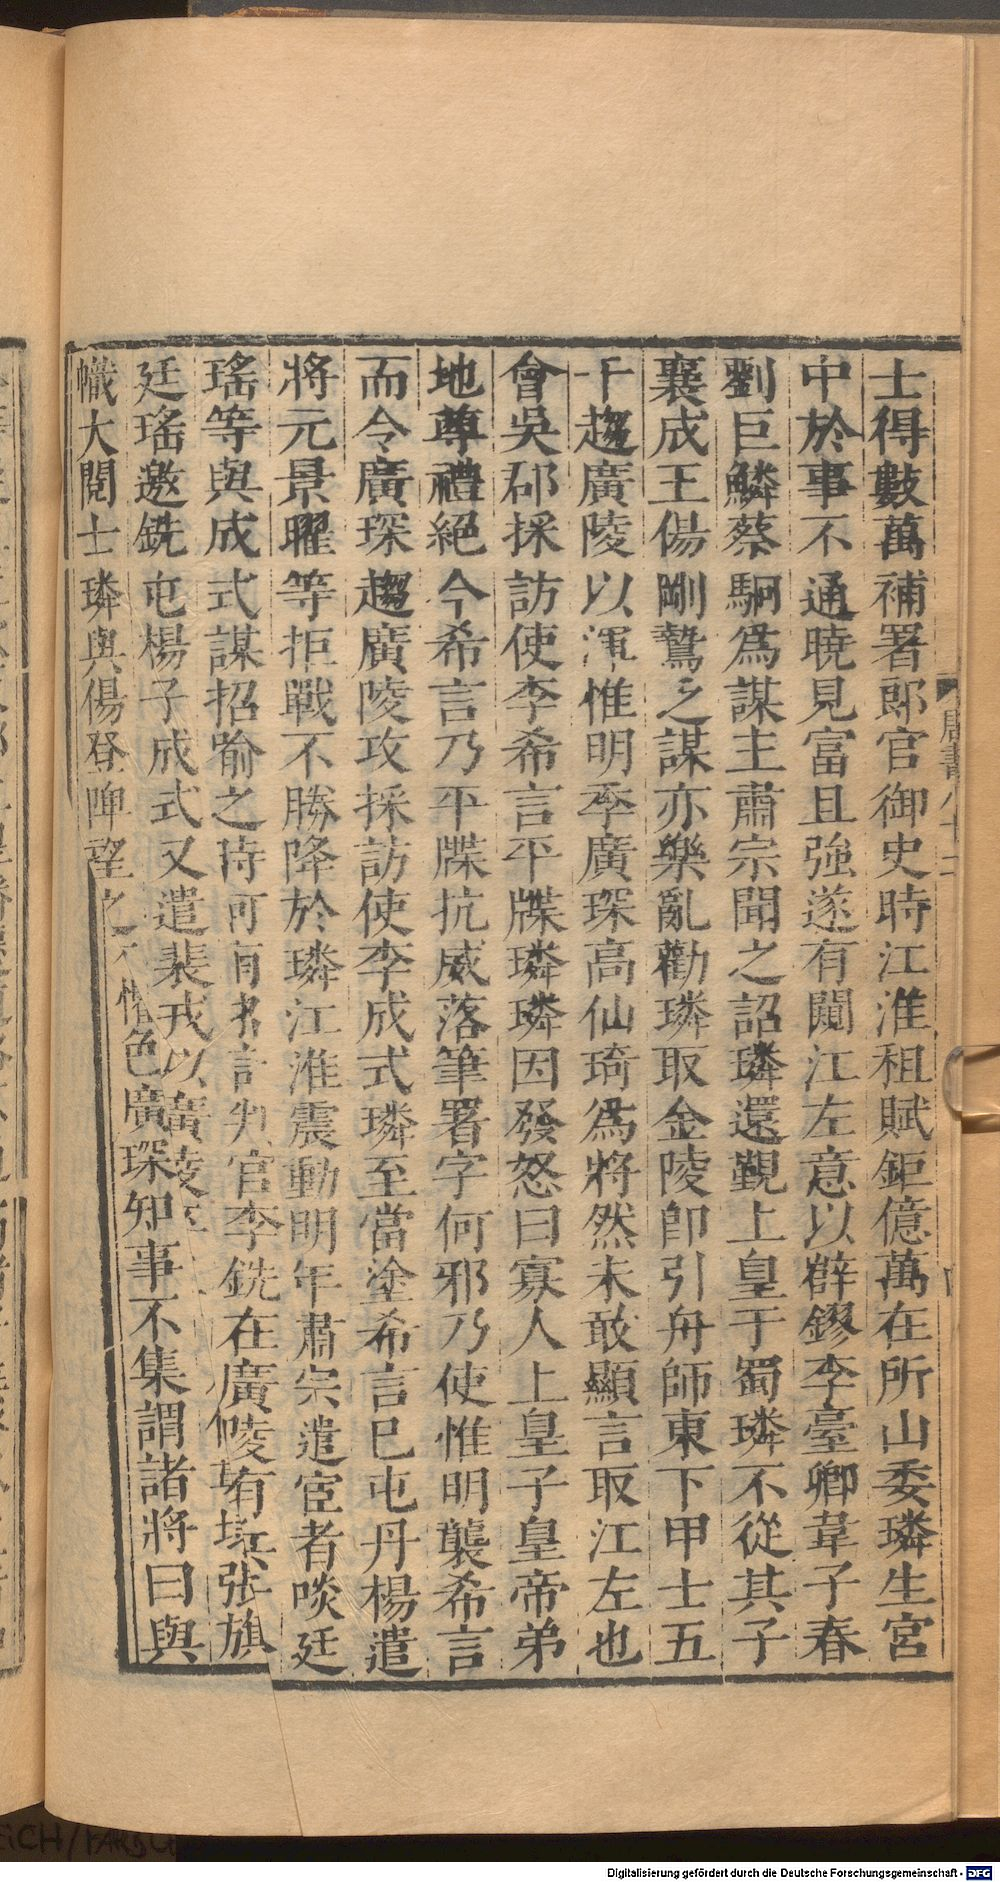 士得數萬補署郎官御史時江淮租賦鉅億萬在所山委璘生宮
中於事不通曉見富且強遂有闚江左意以辥鏐李臺卿韋子春
劉巨鱗蔡駉爲謀主肅宗聞之詔璘還覲上皇于蜀璘不從其子
襄成王偒剛鷙乏謀亦樂亂勸璘取金陵卽引舟師東下甲士五
千趨廣陵以渾惟明季廣琛高仙琦爲將然未敢顯言取江左也
會吳郡採訪使李希言平牒璘璘因發怒曰寡人上皇子皇帝弟
地尊禮絕今希言乃平牒抗威落筆署字何邪乃使惟明襲希言
而令廣琛趨廣陵攻採訪使李成式璘至當塗希言巳屯丹楊遣
將元景曜等拒戰不勝降於璘江淮震動明年肅宗遣宦者啖廷
瑤等與成式謀招喻之時河有名討判官李銑在廣陵有張旗
廷瑤邀銑屯楊子成式又遣裴戎以廣陵
幟大閱士璘與偒登陴望之懼色廣琛知事不集謂諸將曰與
唐書八十二
Digitalisierung gefördert durch die Deutsche Forschungsgemeinschaft - DFG